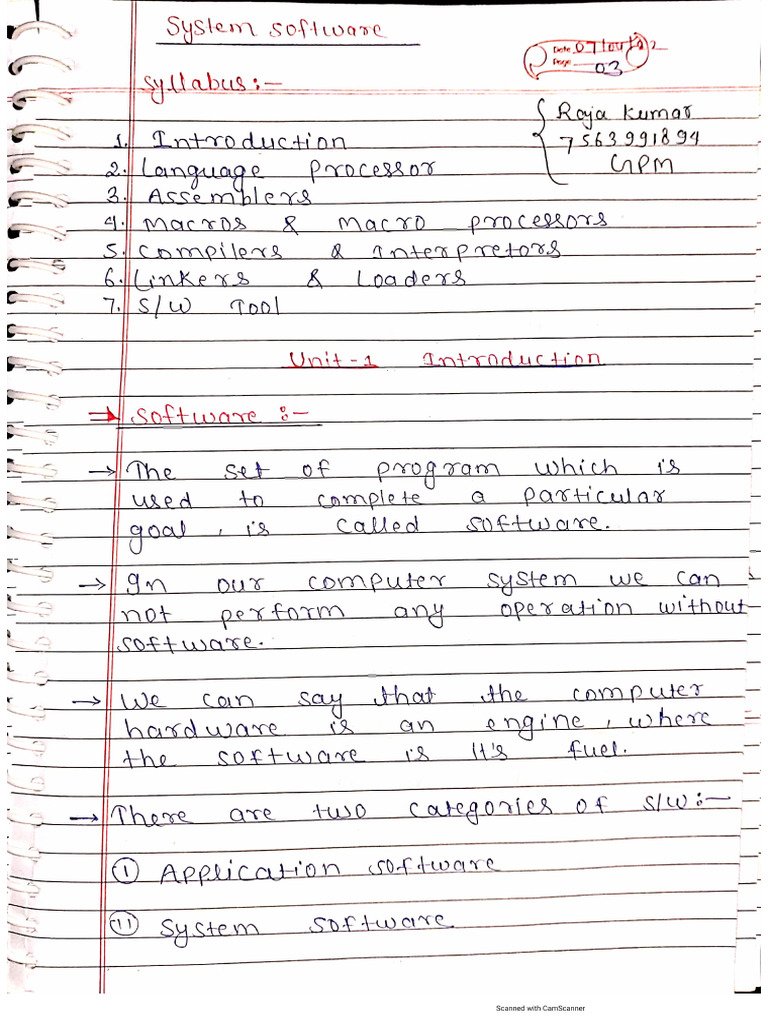 System software
Date 07/04/
Page 03
Syllabus :-
Raja Kumar
7563991894
GPM
1. Introduction
2. Language processor
3. Assemblers
4. Macros & Macro processors
5. Compilers & Interpretors
6. Linkers & Loaders
7. S/W Tool
Unit-1 Introduction
⇒ Software :-
→ The set of program which is
used to complete a particular
goal, is called software.
→ In our computer system we can
not perform any operation without
software.
→ We can say that the computer
hardware is an engine, where
the software is it's fuel.
→ There are two categories of S/W :-
(I) Application software
(II) System software
Scanned with CamScanner